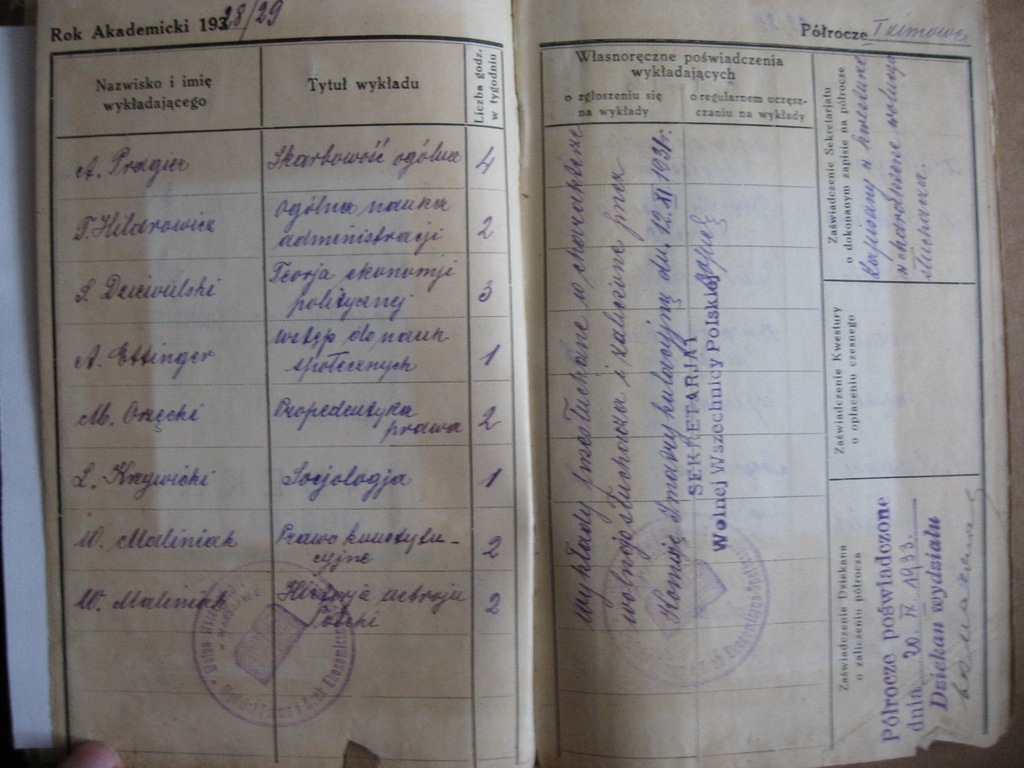 Rok Akademicki 1928/29
Nazwisko i imię
wykładającego
Tytuł wykładu
Liczba godz.
w tygodniu
A. Pragier
Skarbowość ogólna
4
T. Hilarowicz
ogólna nauka
administracji
2
S. Dziewulski
Teorja ekonomji
politycznej
3
A. Ettinger
wstęp do nauk
społecznych
1
M. Orzęcki
Propedeutyka
prawa
2
L. Krzywicki
Socjologja
1
W. Maliniak
Prawo konstytu-
cyjne
2
W. Maliniak
Historja ustroju
Polski
2
Półrocze Zimowe
Własnoręczne poświadczenia
wykładających
o zgłoszeniu się
na wykłady
o regularnem uczęsz-
czaniu na wykłady
wykłady przesłuchane w charakterze
wolnego słuchacza i zaliczone przez
Komisję Immatrykulacyjną dn. 12.XI 1931r.
SEKRETARJAT
Wolnej Wszechnicy Polskiej
Zaświadczenie Sekretarjatu
o dokonanym zapisie na półrocze
Zapisany w kwesturze
w charakterze wolnego
słuchacza.
Zaświadczenie Kwestury
o opłaceniu czesnego
Zaświadczenie Dziekana
o zaliczeniu półrocza
Półrocze poświadczone
dnia 20. IX 1933.
Dziekan wydziału